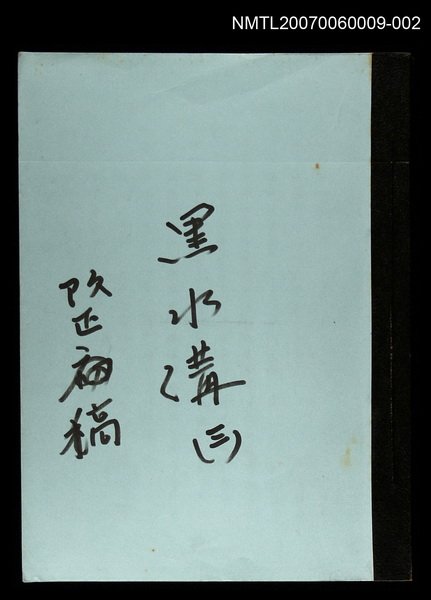 NMTL20070060009-002
黑水溝(三)
改正初稿